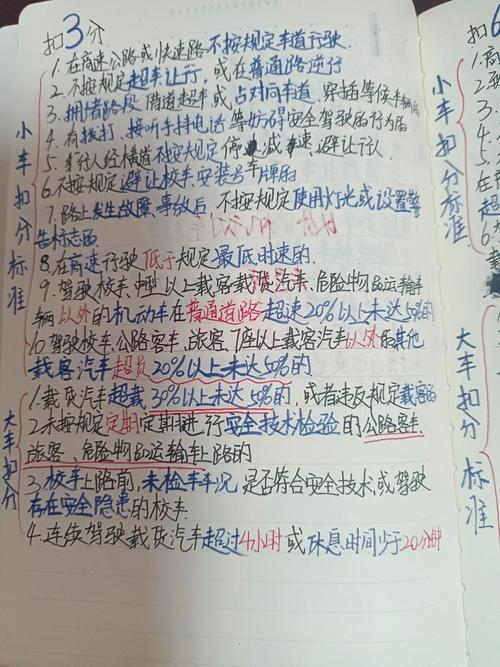 扣3分
小车扣分标准
1.在高速公路或快速路不按规定车道行驶.
2.不按规定超车让行,或在普通路逆行
3.拥堵路段 随道超车或占对向车道、穿插等候车辆的
4.有拨打、接听手持电话等妨碍安全驾驶的行为的
5.行人经横道不按规定停、减速、避让行人
6.不按规定避让校车、安装号牌的
7.路上发生故障、事故后,不按规定使用灯光或设置警
告标志的.
8.在高速行驶低于规定最低时速的.
9.驾驶校车、中型以上载客载货汽车、危险物品运输车
辆以外的机动车在普通道路超速20%以上未达50%的
10.驾驶校车、公路客车、旅客、7座以上载客汽车以外的其他
载客汽车超员20%以上未达50%的
大车扣分
1.载货汽车超载30%以上未达50%的,或者违反规定载客的
2.未按规定定期定期进行安全技术检验的公路客车
旅客、危险物品运输车上路的
3.校车上路前,未检车车况是否符合安全技术,或驾驶
存在安全隐患的校车.
4.连续驾驶载货汽车超过4小时或休息时间少于20分钟
小车扣分标准
大车扣分标准